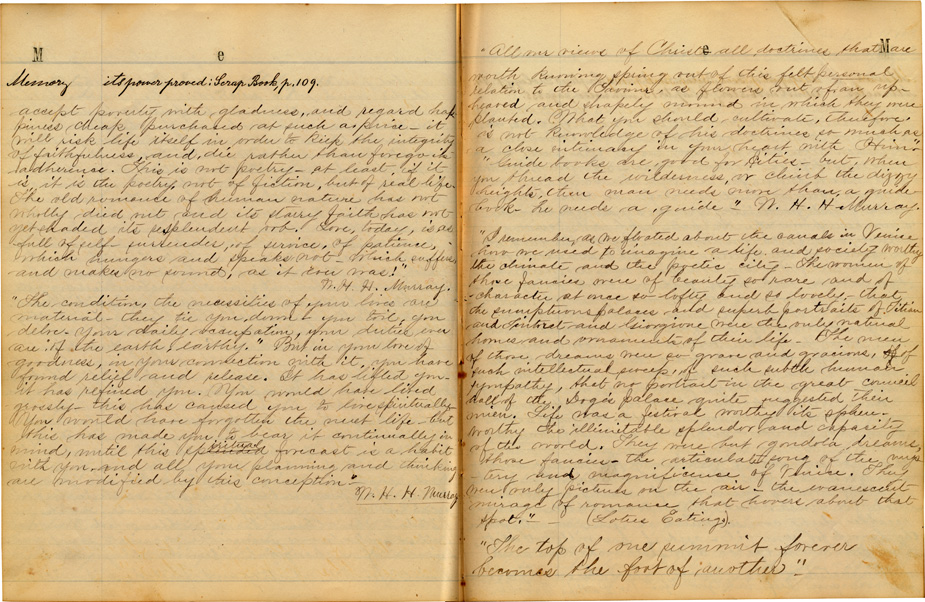 M e
Memory its power proved: Scrap Book, p. 109.
accept poverty with gladness, and regard hap
piness cheap purchased at such a price - it
will risk life itself in order to keep the integrity
of faithfulness, and, die rather than forego its
adherence. This is not poetry - at least, if it
is, it is the poetry, not of fiction, but of real life.
The old romance of human nature has not
wholly died out and its starry faith has not
yet shaded its resplendent orb. Love, today, is as
full of self surrender, of service, of patience,
which hungers and speaks not - which suffers
and makes no sound, as it ever was!"
W. H. H. Murray.
"The condition, the necessities of your lives are
material - they tie you down - you toil, you
delve. Your daily occupation, your duties even
are "of the earth, earthy." But in your love of
goodness, in your connection with it, you have
found relief and release. It has lifted you -
it has refined you. You would have lived
grossly - this has caused you to live spiritually
You would have forgotten the next life - but
this has made you to bear it continually in
mind, until this spiritual forecast is a habit
with you and all your planning and thinking
are modified by this conception"
W. H. H. Murray
e M
"All our views of Christ - all doctrines that are
worth knowing spring out of this felt personal
relation to the Divine, as flowers out of an up-
heaved and shapely mound in which they were
planted. What you should cultivate, therefore
is not knowledge of his doctrines so much as
a close intimacy in your heart with Him"
"Guide books are good for Cities - but, when
you thread the wilderness, or climb the dizzy
heights, then man needs more than a guide-
book - he needs a guide" W. H. H. Murray.
"I remember, as we floated about the canals in Venice
how we used to imagine a life and society worthy
the climate and the poetic city - The women of
those fancies were of beauty so rare and of
character at once so lofty and so lovely that
the sumptuous palaces and superb portraits of Titian
and Tintoret and Giorgione were the only natural
homes and ornaments of their life - The men
of those dreams were so grave and gracious, of
such intellectual sweep, of such subtle human
sympathy, that no portrait in the great council
hall of the Doge's palace quite suggested their
mien. Life was a festival worthy its sphere -
worthy the illimitable splendor and capacity
of the world. They were but gondola dreams,
those fancies - the articulate song of the mys-
tery and magnificence of Venice. They
were only pictures on the air - the evanescent
mirage of romance that hovers about that
spot." - (Lotus Eating).
"The top of one summit forever
becomes the foot of another"